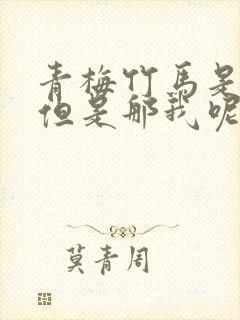 青梅竹马是
但是那我呢
莫青周